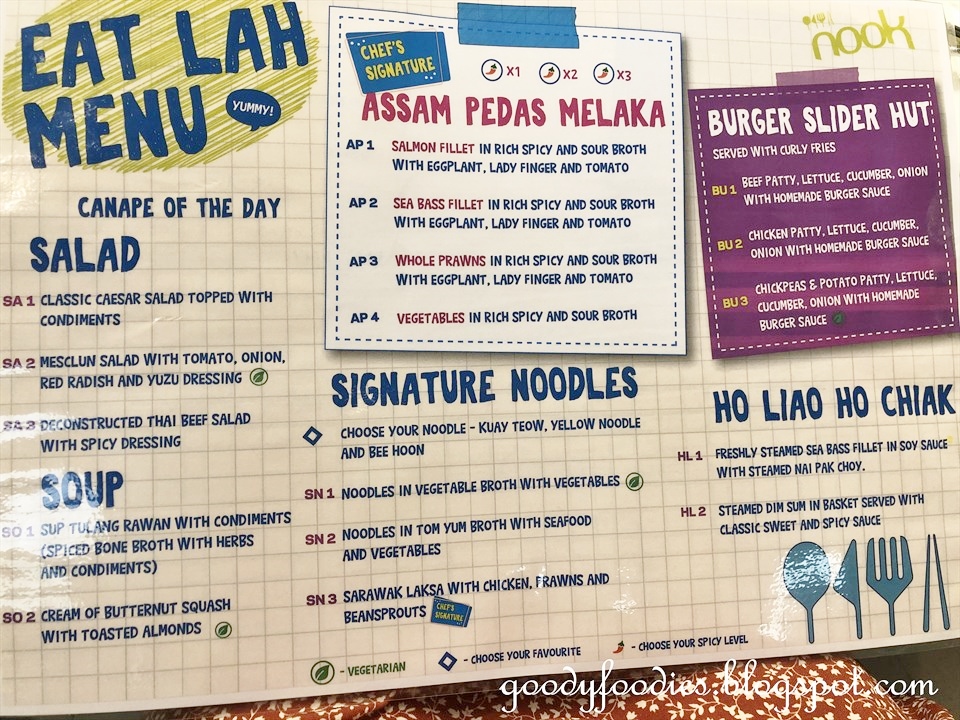 EAT LAH
MENU
YUMMY!
CANAPE OF THE DAY
SALAD
SA 1 CLASSIC CAESAR SALAD TOPPED WITH
CONDIMENTS
SA 2 MESCLUN SALAD WITH TOMATO, ONION,
RED RADISH AND YUZU DRESSING
SA 3 DECONSTRUCTED THAI BEEF SALAD
WITH SPICY DRESSING
SOUP
SO 1 SUP TULANG RAWAN WITH CONDIMENTS
(SPICED BONE BROTH WITH HERBS
AND CONDIMENTS)
SO 2 CREAM OF BUTTERNUT SQUASH
WITH TOASTED ALMONDS
CHEF'S
SIGNATURE
X1 X2 X3
ASSAM PEDAS MELAKA
AP 1 SALMON FILLET IN RICH SPICY AND SOUR BROTH
WITH EGGPLANT, LADY FINGER AND TOMATO
AP 2 SEA BASS FILLET IN RICH SPICY AND SOUR BROTH
WITH EGGPLANT, LADY FINGER AND TOMATO
AP 3 WHOLE PRAWNS IN RICH SPICY AND SOUR BROTH
WITH EGGPLANT, LADY FINGER AND TOMATO
AP 4 VEGETABLES IN RICH SPICY AND SOUR BROTH
SIGNATURE NOODLES
CHOOSE YOUR NOODLE - KUAY TEOW, YELLOW NOODLE
AND BEE HOON
SN 1 NOODLES IN VEGETABLE BROTH WITH VEGETABLES
SN 2 NOODLES IN TOM YUM BROTH WITH SEAFOOD
AND VEGETABLES
SN 3 SARAWAK LAKSA WITH CHICKEN, PRAWNS AND
BEANSPROUTS
CHEF'S
SIGNATURE
nook
BURGER SLIDER HUT
SERVED WITH CURLY FRIES
BU 1 BEEF PATTY, LETTUCE, CUCUMBER, ONION
WITH HOMEMADE BURGER SAUCE
BU 2 CHICKEN PATTY, LETTUCE, CUCUMBER,
ONION WITH HOMEMADE BURGER SAUCE
BU 3 CHICKPEAS & POTATO PATTY, LETTUCE,
CUCUMBER, ONION WITH HOMEMADE
BURGER SAUCE
HO LIAO HO CHIAK
HL 1 FRESHLY STEAMED SEA BASS FILLET IN SOY SAUCE
WITH STEAMED NAI PAK CHOY.
HL 2 STEAMED DIM SUM IN BASKET SERVED WITH
CLASSIC SWEET AND SPICY SAUCE
- VEGETARIAN - CHOOSE YOUR FAVOURITE - CHOOSE YOUR SPICY LEVEL
goodyfoodies.blogspot.com